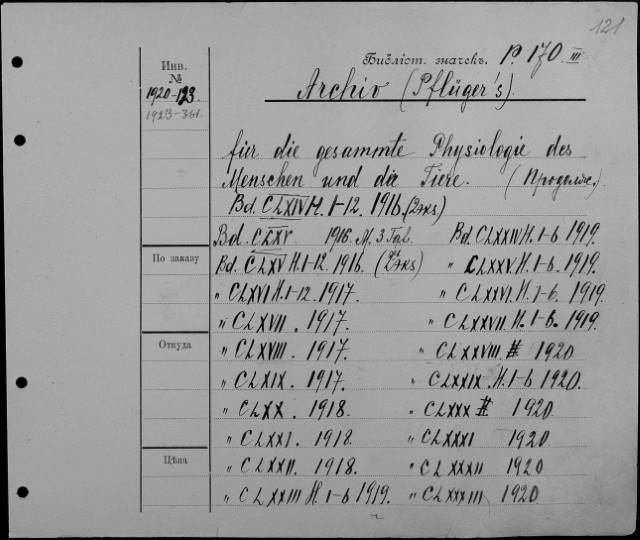 121
Библіот. значекъ. P. 170 III
Инв.
№
1920-123.
1923-361.
Archiv (Pflüger's).
für die gesammte Physiologie des
Menschen und die Tiere. (Продолж.)
Bd. CLXIV H. 1-12. 1916. (2экз)
Bd. CLXV. 1916. М. 3 Таб. Bd. CLXXIV H. 1-6 1919.
По заказу
Bd. CLXV H. 1-12. 1916. (2экз) " CLXXV. H. 1-6. 1919.
" CLXVI H. 1-12 1917. " CLXXVI. H. 1-6. 1919.
" CLXVII. 1917. " CLXXVII. H. 1-6. 1919.
Откуда
" CLXVIII. 1917. " CLXXVIII. 1920
" CLXIX. 1917. " CLXXIX. H. 1-6 1920.
" CLXX. 1918. " CLXXX 1920
" CLXXI. 1918. " CLXXXI 1920
Цѣна
" CLXXII. 1918. " CLXXXII 1920
" CLXXIII H. 1-6 1919. " CLXXXIII 1920